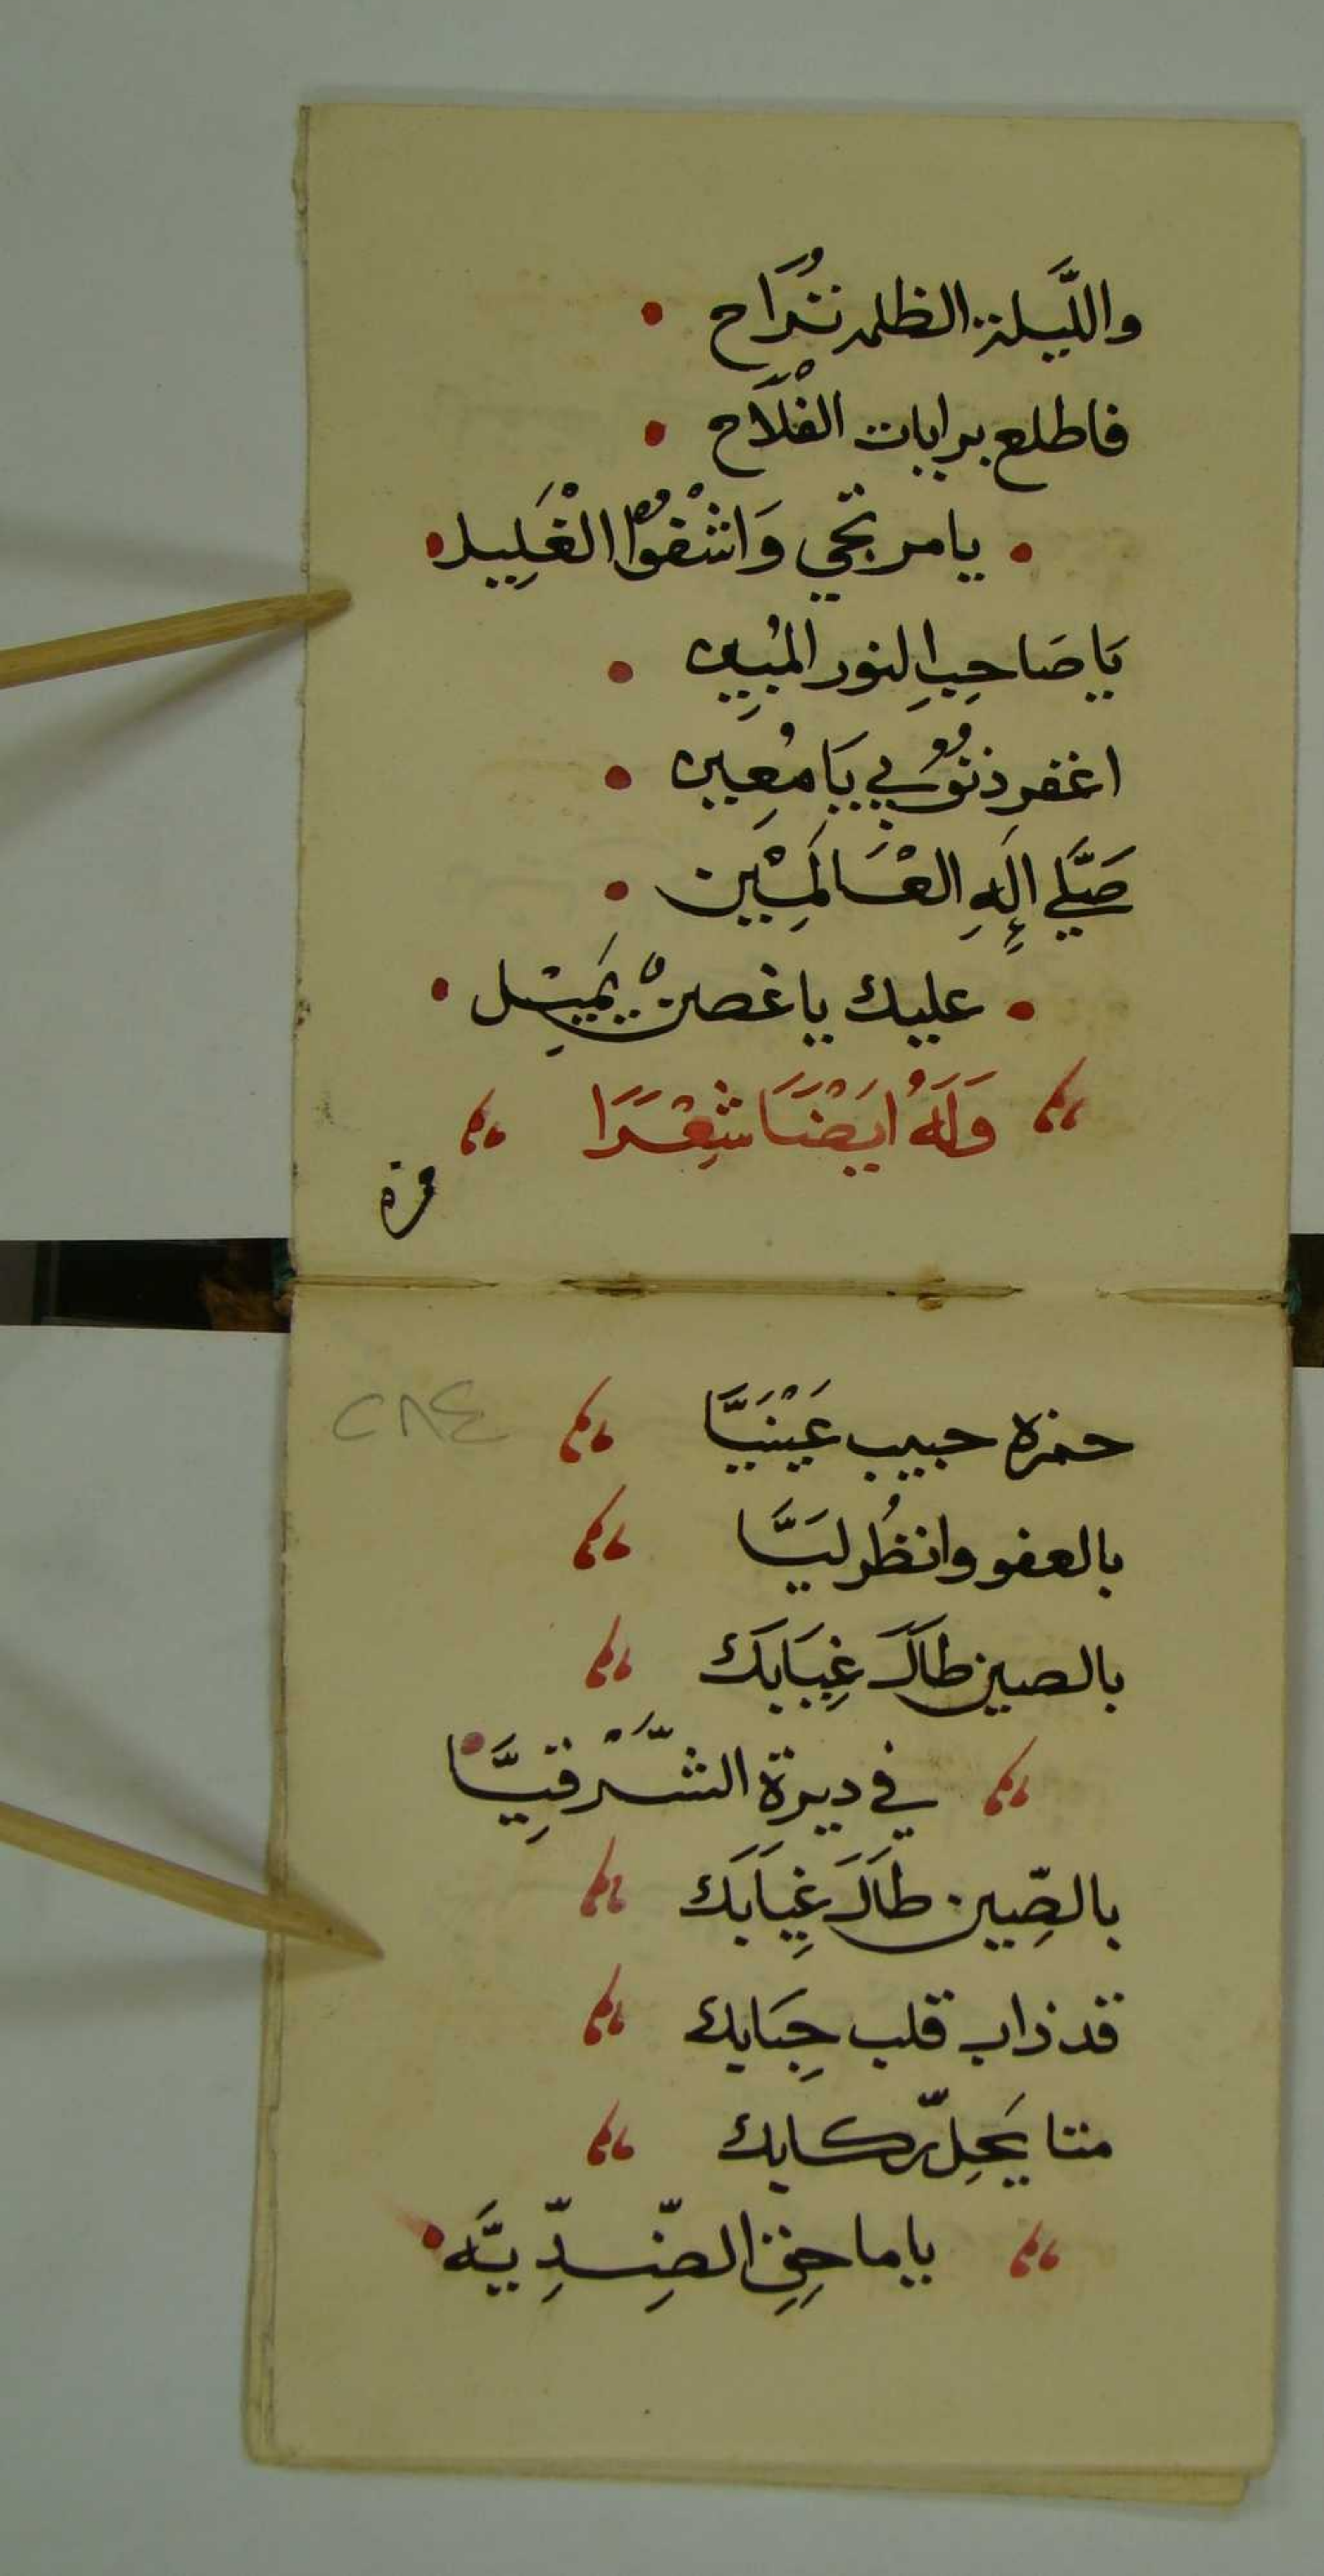 واللَّيلة الظلمه تُنزَاح
فاطلع برايات الفْلَاح
يا مرتجي وَاشْفوُا الغْلِيل
يَا صَاحِبِ النور المُبِين
اغفر ذنُوُبي يَا مُعِين
صَلَّي اِلَهِ العْـَالَمِيْن
عليك يا غصنْ يَميْـِل
وَلَهُ ايَضْـَا شِعْـَرَا
حمزه
٢٨٤
حمزه حبيب عَيْنَيَّا
بالعفو وانظُر ليَـَّا
بالصين طاَلَ غِيَابَك
في ديرة الشَّـرْقِيَّا
بالصِّين طَالَ غِيَابَك
قد ذاب قلب حِبَابك
متا يَحِلّ ركابك
يا ماحِقِ الضِّـدِّيَّه